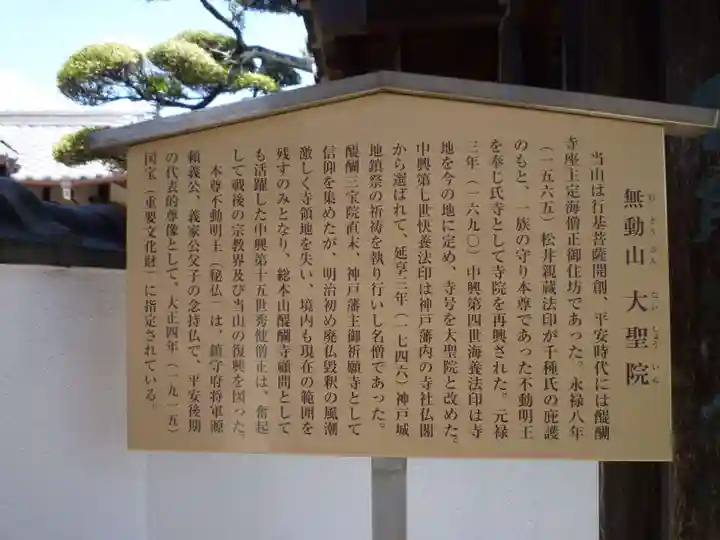 無動山 大聖院
むどうさん だいしょういん
当山は行基菩薩開創、平安時代には醍醐
寺座主定海僧正御住坊であった。永禄八年
（一五六五）松井親蔵法印が千種氏の庇護
のもと、一族の守り本尊であった不動明王
を奉じ氏寺として寺院を再興された。元禄
三年（一六九〇）中興第四世海養法印は寺
地を今の地に定め、寺号を大聖院と改めた。
中興第七世快養法印は神戸藩内の寺社仏閣
から選ばれて、延享三年（一七四六）神戸城
地鎮祭の祈祷を執り行いし名僧であった。
醍醐三宝院直末、神戸藩主御祈願寺として
信仰を集めたが、明治初め廃仏毀釈の風潮
激しく寺領地を失い、境内も現在の範囲を
残すのみとなり、総本山醍醐寺顧問として
も活躍した中興第十五世秀健僧正は、奮起
して戦後の宗教界及び当山の復興を図った。
本尊不動明王（秘仏）は、鎮守府将軍源
頼義公、義家公父子の念持仏で、平安後期
の代表的尊像として、大正四年（一九一五）
国宝（重要文化財）に指定されている。